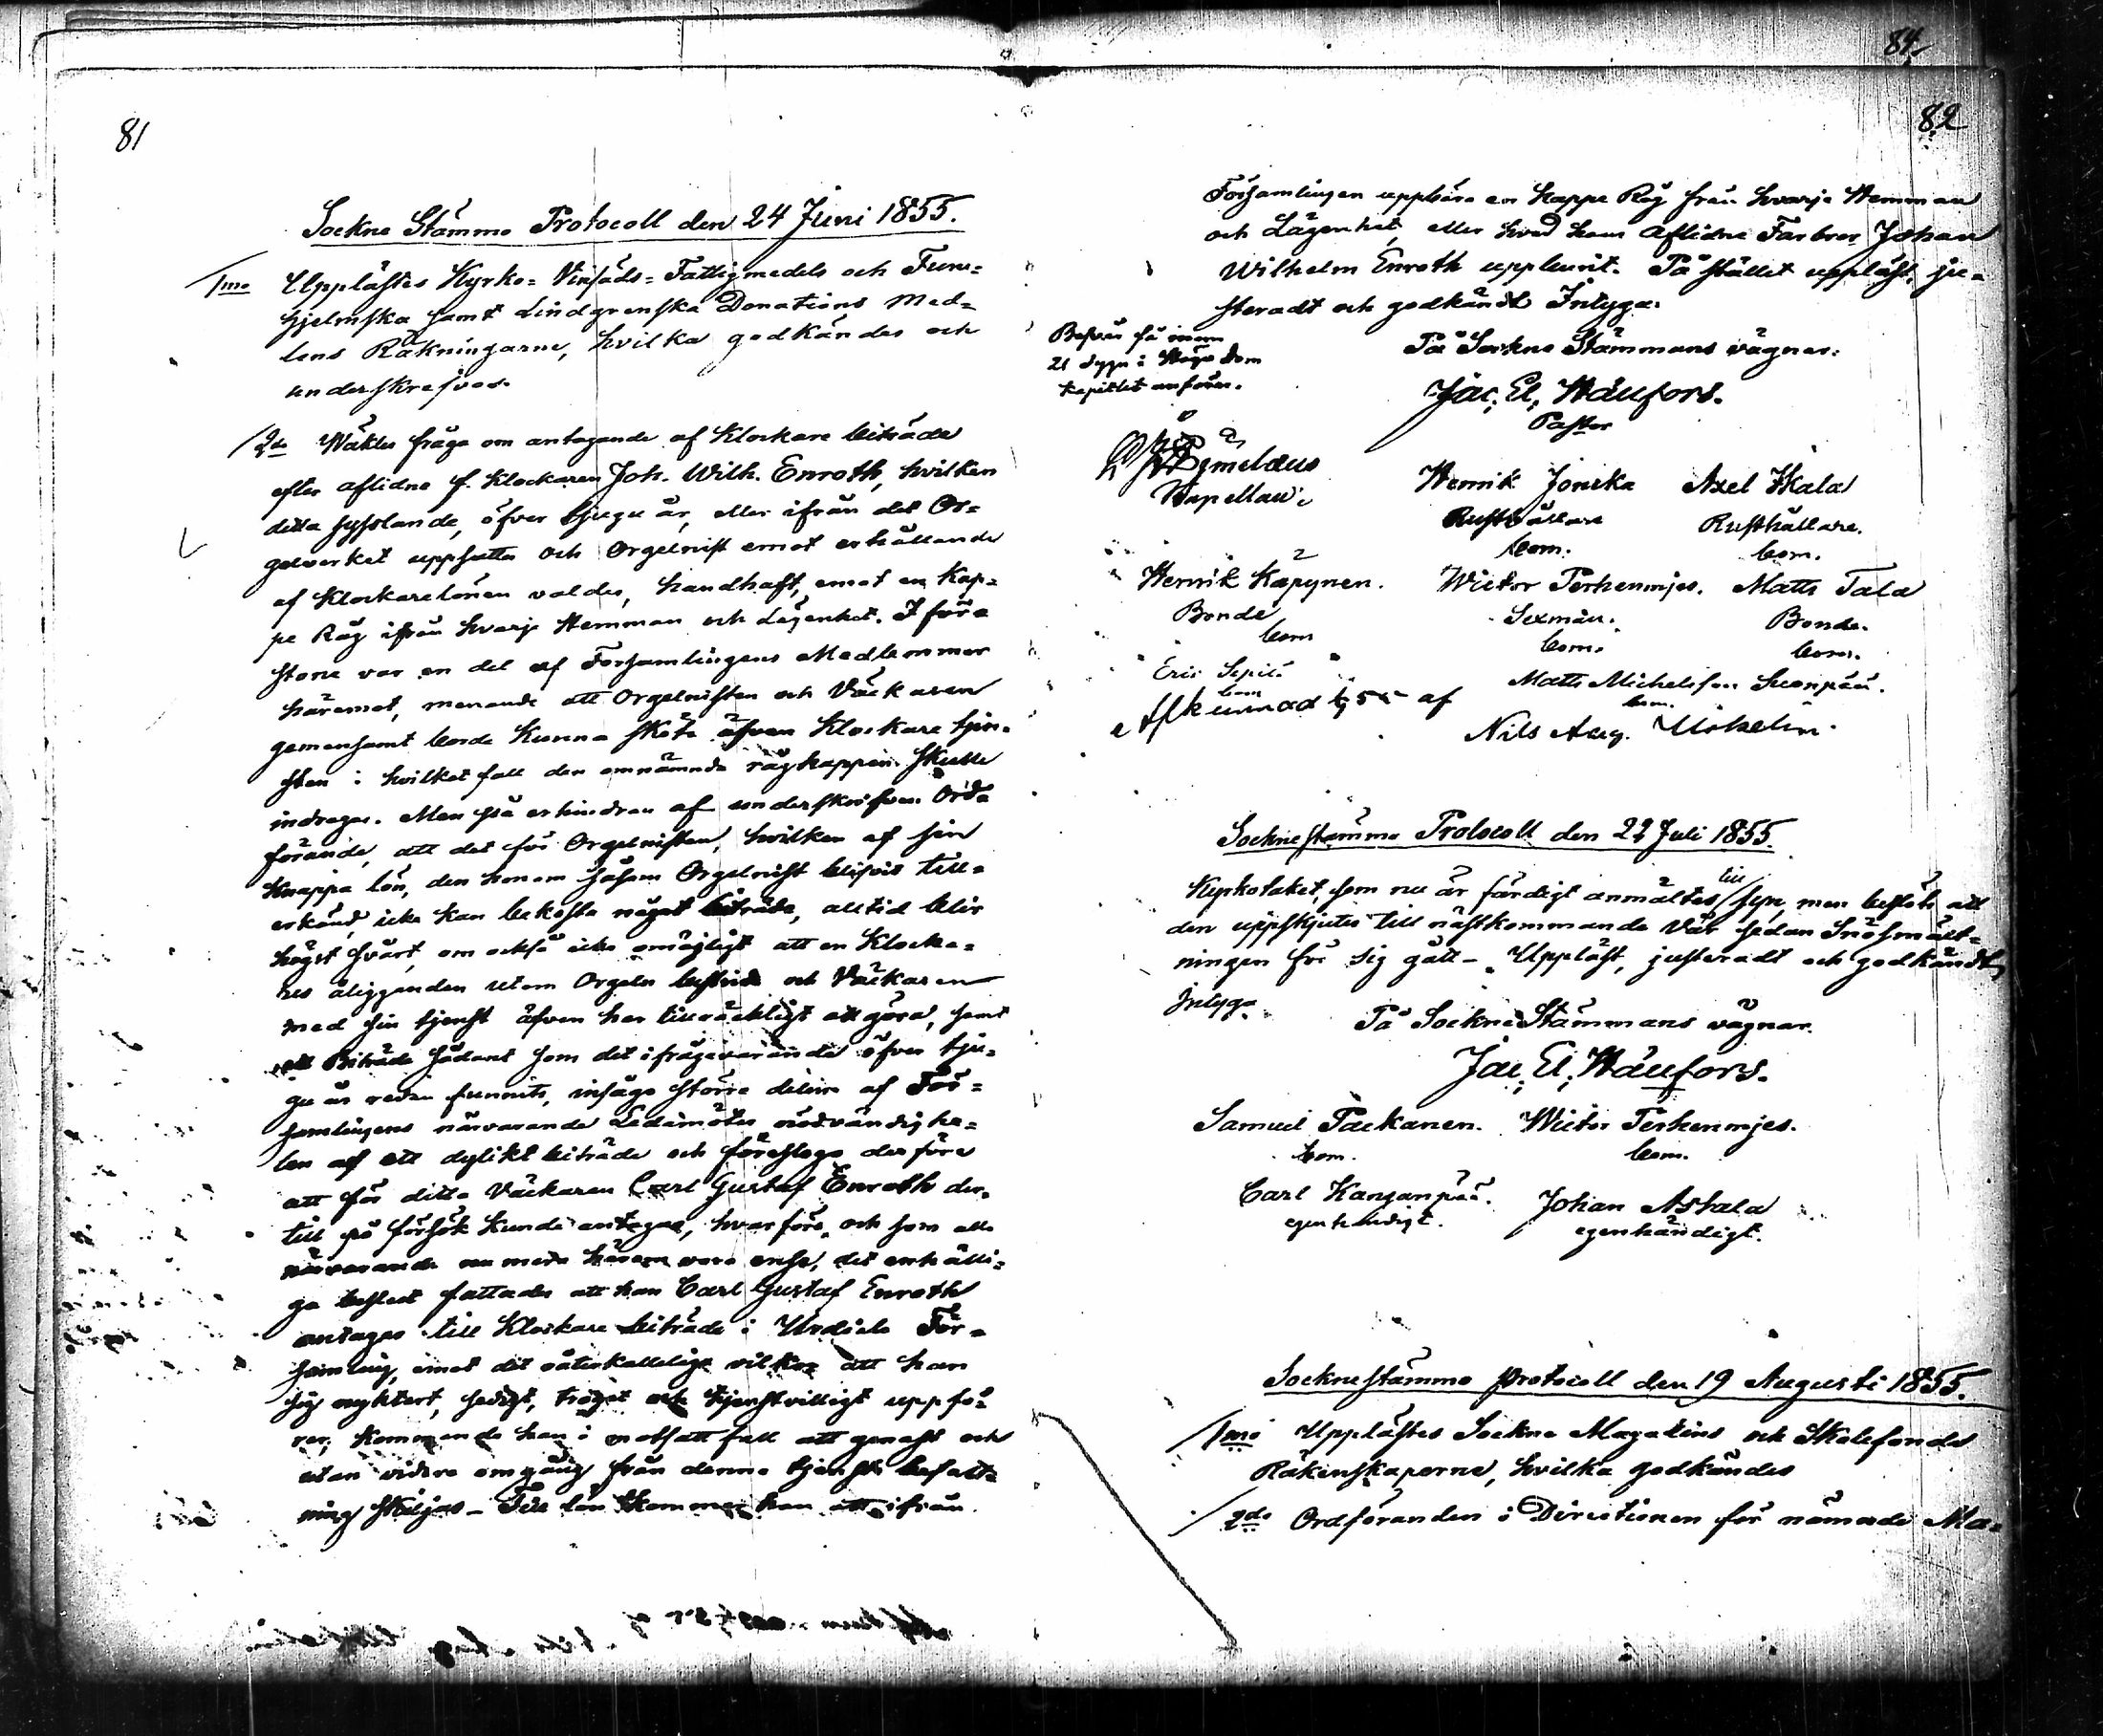 84
81
Sockne Stämmo Protocoll den 24 Juni 1855.
1mo Upplästes Kyrko= Vinsäds= Fattigmedels och Furu=
hjelmska samt Lindgrenska Donations Med=
lens Räkningarne, hvilka godkändes och
underskrefvos.
2do Wäktes fråga om antagande af Klockare biträde
efter aflidne f. Klockaren Joh. Wilh. Enroth, hvilken
detta sysslande, öfver tjugu år, eller ifrån det Or=
gelverket uppsattes och Orgelnist emot erhållande
af Klockarelönen valdes, handhaft, emot en Kap=
pe Råg ifrån hvarje Hemman och Lägenhet. I för=
stone var en del af Församlingens Medlemmar
häremot, menande att Orgelnisten och Väckaren
gemensamt borde kunna sköta äfven Klockare tjen=
sten i hvilket fall den omnämnda rågkappen skulle
indragas. Men på erhindran af underskrifven Ordf=
förande, att det för Orgelnisten, hvilken af sin
knappa lön, den honom såsom Orgelnist blifvit till=
erkänd, icke kan bekosta något biträde, alltid blir
högst svårt, om också icke omöjligt att en Klocka=
res åligganden utom Orgeln bestrida och Väckaren
med sin tjenst äfven har tillräckligt att göra, samt
ett Biträde sådant som det ifrågavarande öfver tju=
gu år redan funnits, insågo större delen af För=
samlingens närvarande Ledamöter nödvändighe=
ten af ett dylikt biträde och föreslogo derföre
att för detta Väckaren Carl Gustaf Enroth der=
till på försök kunde antagas, hvarföre, och som alla
närvarande numera härom voro ense, det enhälli=
ga beslut fattades att han Carl Gustaf Enroth
antages till Klockare biträde i Urdiala För=
samling, emot det oåterkalleliga vilkor att han
sig nyktert, sedigt, troget och tjenstvilligt uppfö=
rer, kommande han i motsatt fall att genast och
utan vidare omgång från denna tjenste befatt=
ning skiljas – Till lön kommer han att ifrån
82
Församlingen uppbära en kappe Råg från hvarje Hemman
och Lägenhet, eller hvad hans Aflidne Farbror Johan
Wilhelm Enroth uppburit. På stället uppläst, ju=
steradt och godkändt Intyga:
På Sockne Stämmans vägnar:
Besvär få inom
21 dygn i Höga Dom
kapitlet anföras.
Jac. El. Häufors.
Pastor
Kapellan
Henrik Jonska Axel Skala
Rusthållare Rusthållare.
bom. bom.
Henrik Kapynen. Wictor Perhenmjes. Matts Tala
Bonde Sexman. Bonde.
bom bom. bom.
Eric Sepilä Matts Michelsson Suonpää.
bom bom.
Afkunnad 55 af Nils Aug. Michelin.
Socknestämmo Protocoll den 22 Juli 1855.
Kyrkotaket, som nu är färdigt anmältes till syn, men beslöts att
den uppskjutes till nästkommande Vår sedan Snösmält=
ningen för sig gått – Uppläst, justeradt och godkändt,
Intyga
På Sockne Stämmans vägnar.
Jac. El. Häufors.
Samuel Packanen. Wictor Perhenmjes.
bom. bom.
Carl Kanganpää. Johan Ashala
egenhändigt. egenhändigt.
Socknestämmo Protocoll den 19 Augusti 1855.
1mo Upplästes Sockne Magasins och Skolefonds
Räkenskaperne, hvilka godkändes
2do Ordföranden i Directionen för nämnde Ma=